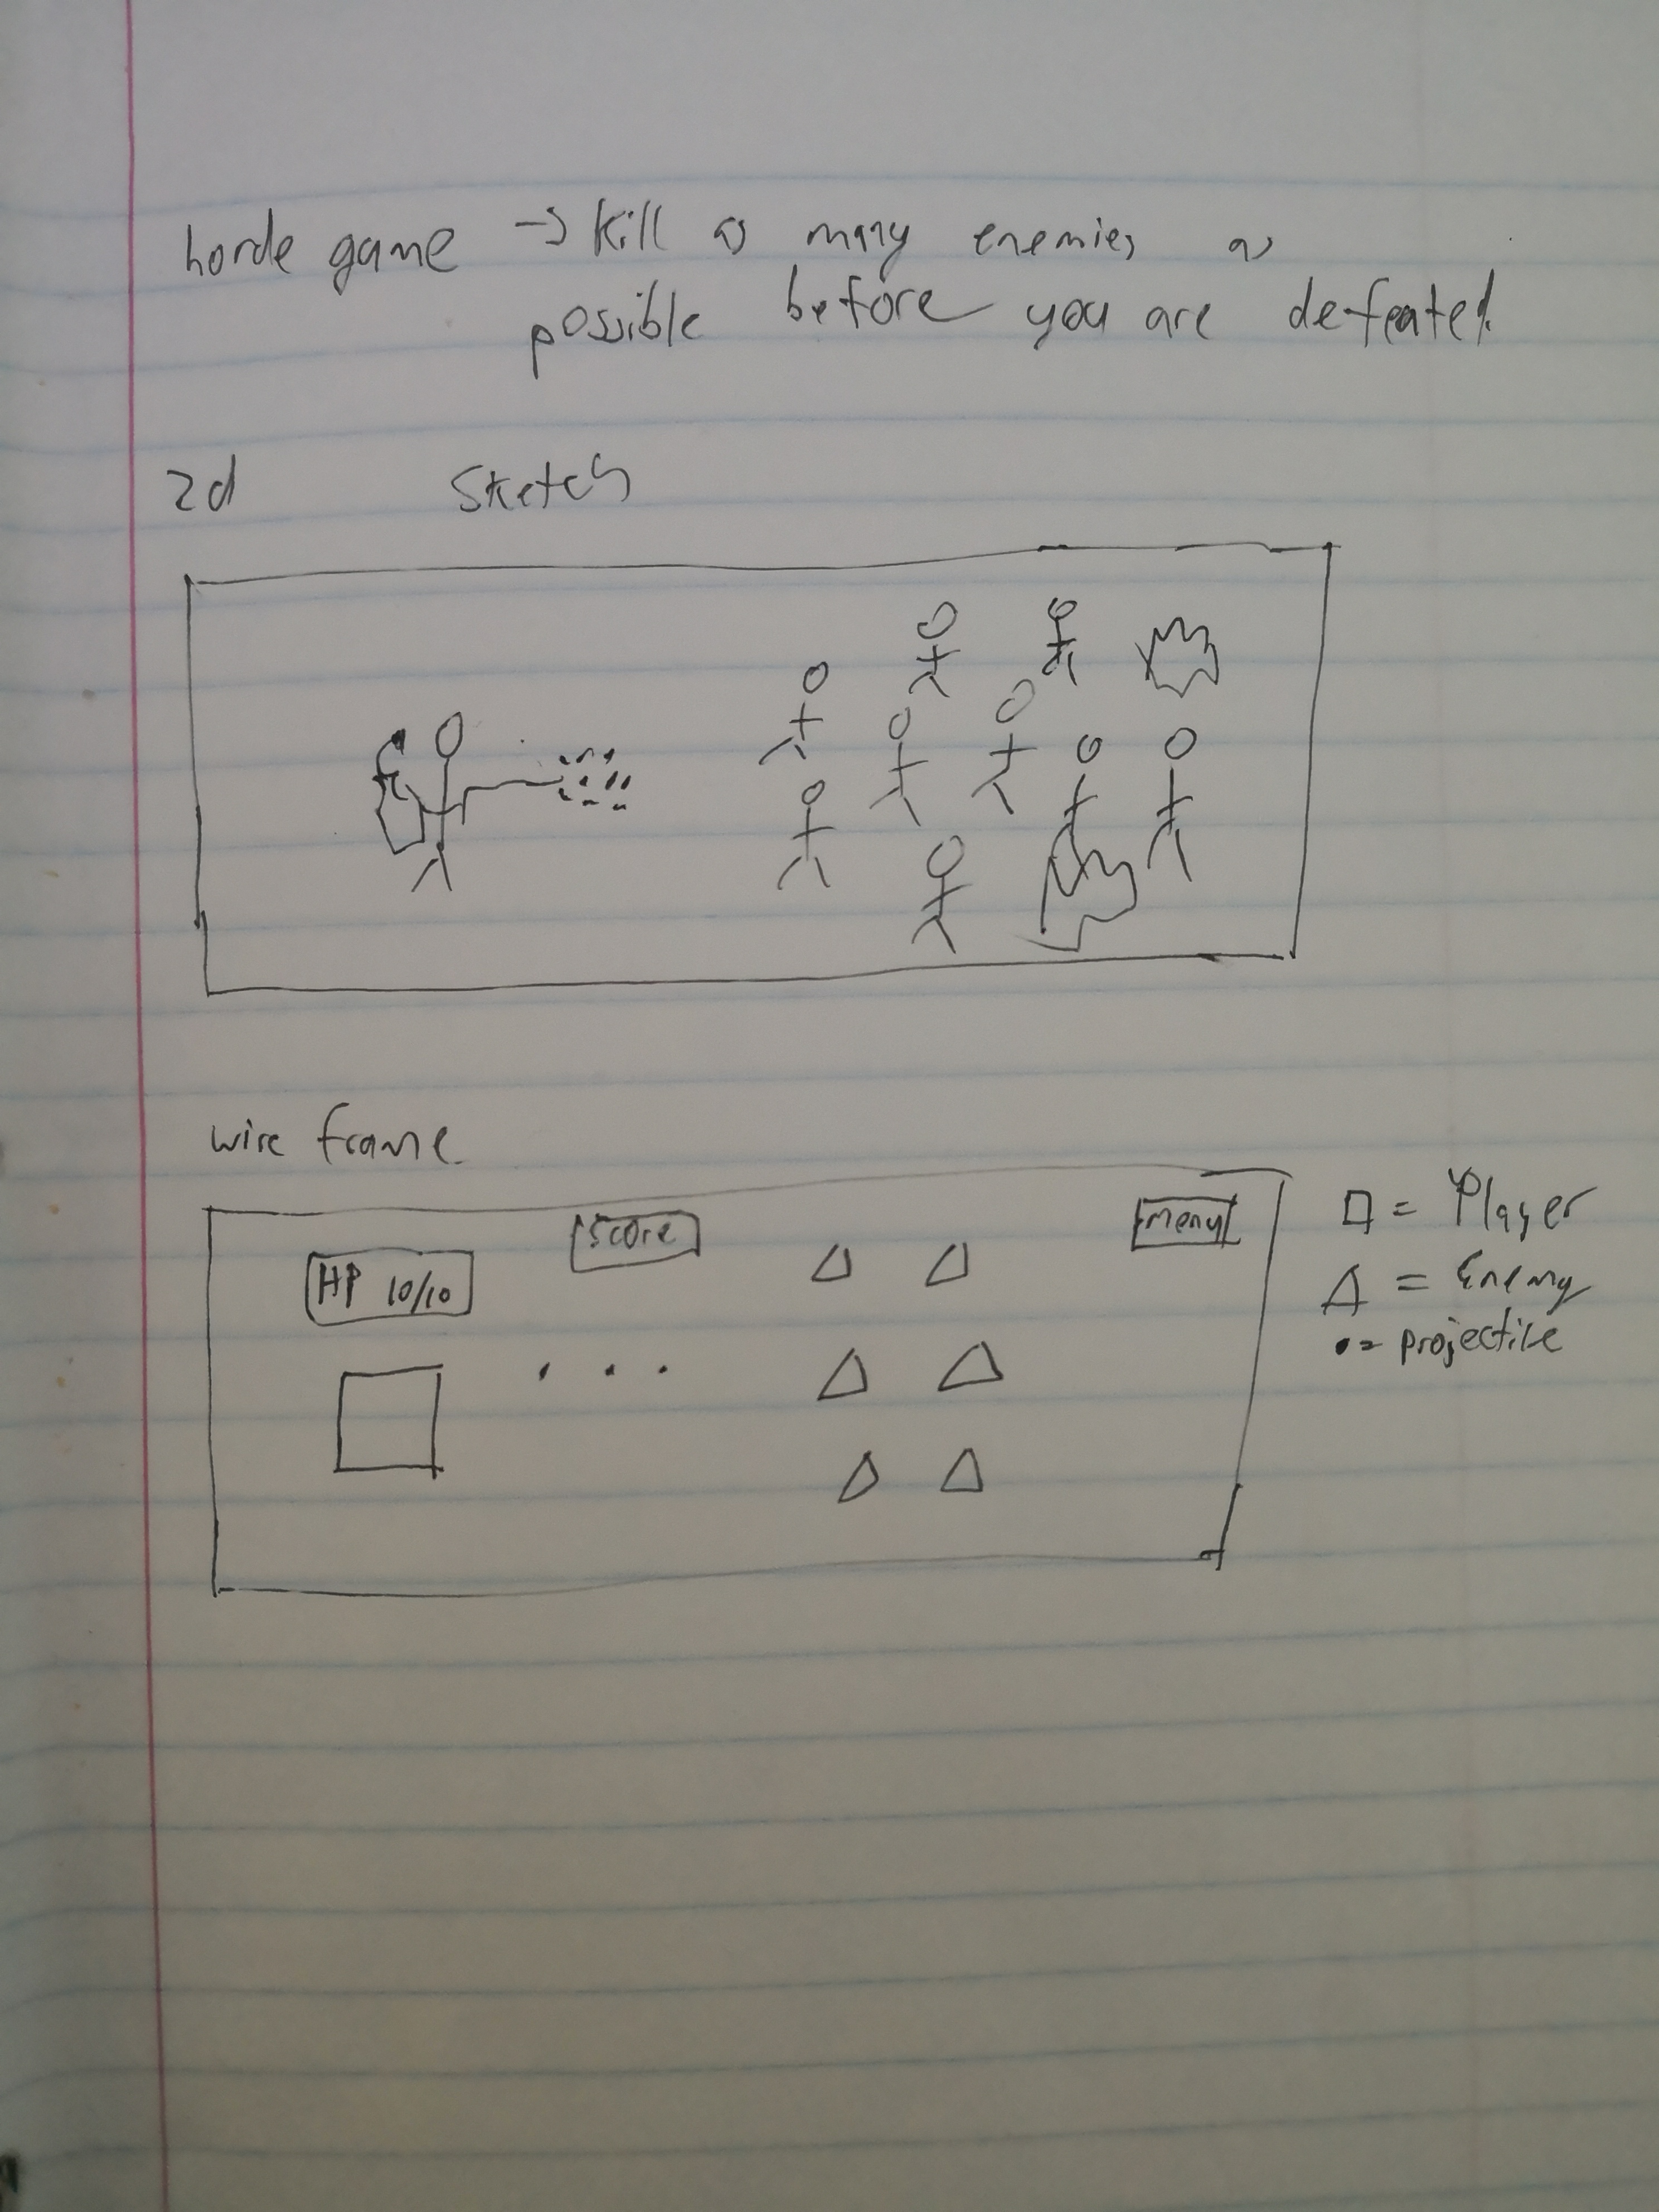 horde game → kill as many enemies as
possible before you are defeated.
2d sketch
wire frame.
HP 10/10
score
menu
□ = Player
△ = Enemy
• = projectile